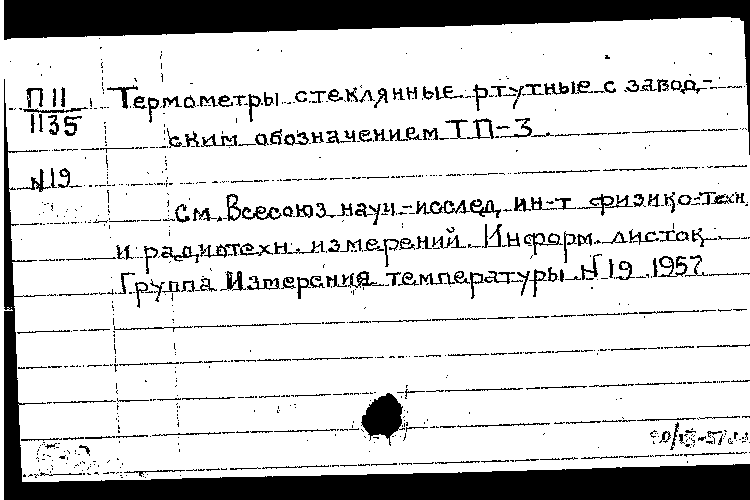 П11
1135
Термометры стеклянные ртутные с завод-
ским обозначением ТП-3.
N19
См. Всесоюз. науч.-исслед. ин-т физико-техн.
и радиотехн. измерений. Информ. листок.
Группа Измерения температуры. N19. 1957